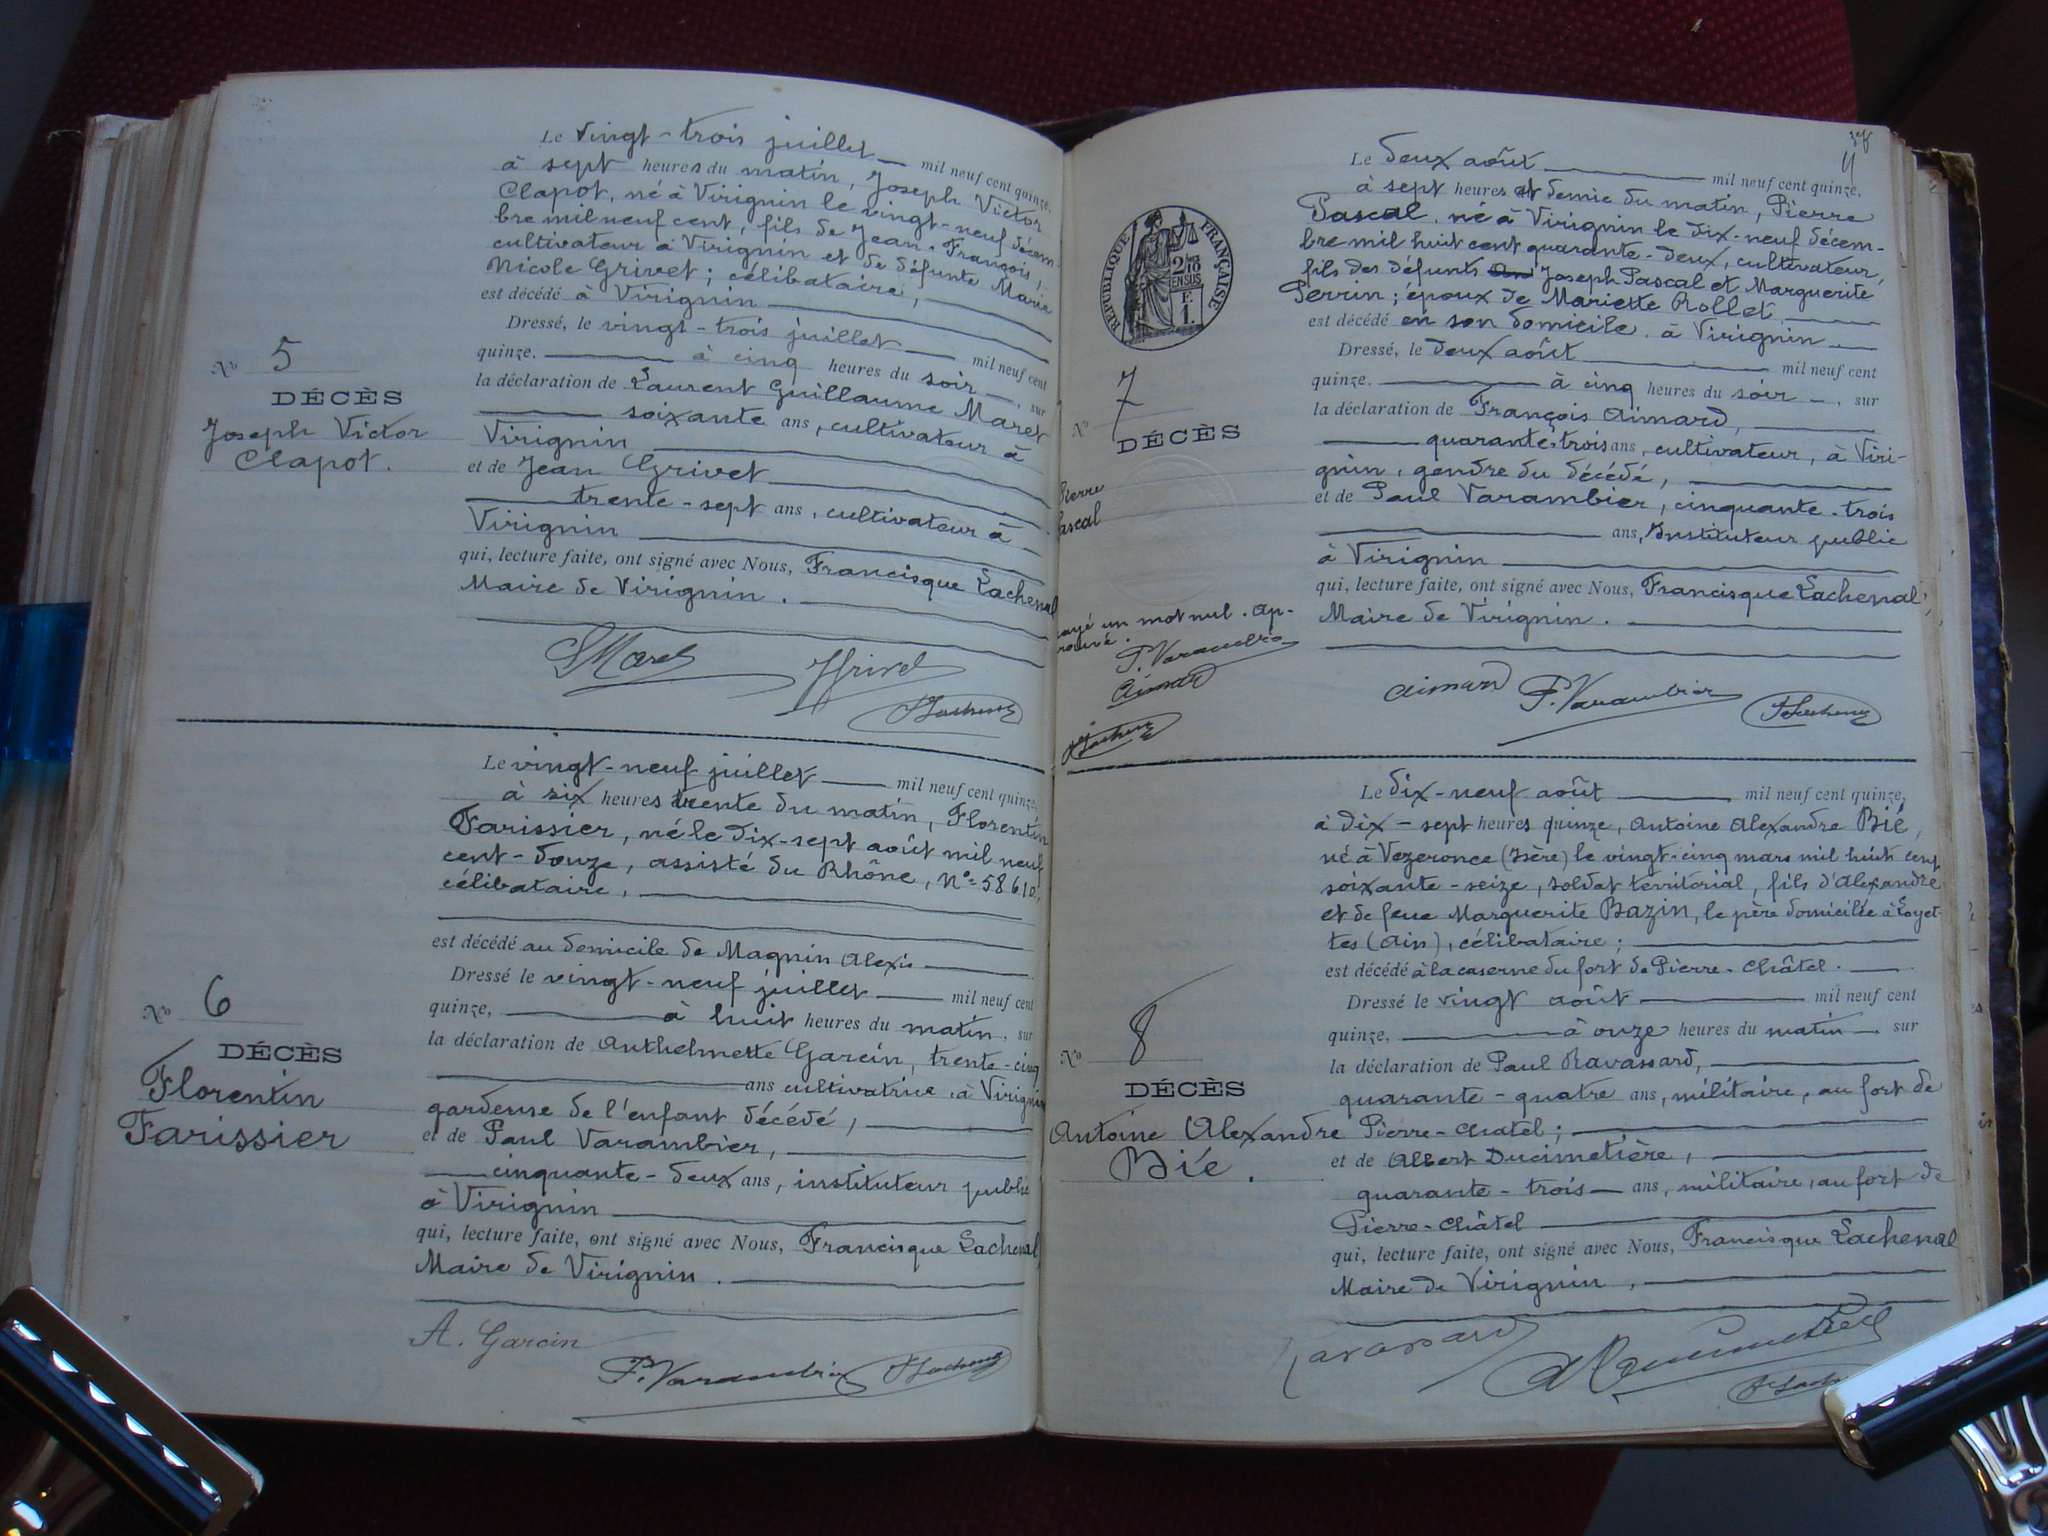 Le vingt-trois juillet mil neuf cent quinze,
à sept heures du matin, Joseph Victor
Clapot, né à Virignin le vingt-neuf décem-
bre mil neuf cent, fils de Jean-François,
cultivateur à Virignin et de défunte Marie
Nicole Grivet; célibataire,
est décédé à Virignin
Dressé, le vingt-trois juillet mil neuf cent
quinze. à cinq heures du soir, sur
la déclaration de Laurent Guillaume Maret
soixante ans, cultivateur à
Virignin
et de Jean Grivet
trente-sept ans, cultivateur à
Virignin
qui, lecture faite, ont signé avec Nous, Francisque Lachenal
Maire de Virignin.
No 5
DÉCÈS
Joseph Victor
Clapot.
LMaret JGrivet
FLachenal
Le vingt-neuf juillet mil neuf cent quinze,
à six heures trente du matin, Florentin
Farissier, né le dix-sept août mil neuf
cent-douze, assisté du Rhône, No 58610,
célibataire,
est décédé au domicile de Magnin Alexis
Dressé le vingt-neuf juillet mil neuf cent
quinze, à huit heures du matin, sur
la déclaration de Anthelmette Garcin, trente-cinq
ans cultivatrice, à Virignin
gardeuse de l'enfant décédé,
et de Paul Varambier,
cinquante-deux ans, instituteur public
à Virignin
qui, lecture faite, ont signé avec Nous, Francisque Lachenal,
Maire de Virignin.
No 6
DÉCÈS
Florentin
Farissier
A. Garcin
P. Varambier FLachenal
4
Le deux août mil neuf cent quinze,
à sept heures et demie du matin, Pierre
Pascal, né à Virignin le dix-neuf décem-
bre mil huit cent quarante-deux, cultivateur,
fils des défunts Joseph Pascal et Marguerite
Perrin; époux de Mariette Rollet
est décédé en son domicile à Virignin
Dressé, le deux août mil neuf cent
quinze. à cinq heures du soir, sur
la déclaration de François Aimard,
quarante-trois ans, cultivateur, à Viri-
gnin, gendre du décédé,
et de Paul Varambier, cinquante-trois
ans, Instituteur public
à Virignin
qui, lecture faite, ont signé avec Nous, Francisque Lachenal,
Maire de Virignin.
REPUBLIQUE FRANÇAISE
2/10
EN SUS
1F.
No 7
DÉCÈS
Pierre
Pascal
rayé un mot nul. Ap-
prouvé.
P. Varambier
Aimard
FLachenal
Aimard P. Varambier FLachenal
Le dix-neuf août mil neuf cent quinze,
à dix-sept heures quinze, Antoine Alexandre Bié,
né à Vezeronce (Isère) le vingt-cinq mars mil huit cent
soixante-seize, soldat territorial, fils d'Alexandre
et de feue Marguerite Bazin, le père domicilié à Loyet-
tes (Ain), célibataire;
est décédé à la caserne du fort de Pierre-Châtel.
Dressé le vingt août mil neuf cent
quinze, à onze heures du matin, sur
la déclaration de Paul Ravassard,
quarante-quatre ans, militaire, au fort de
Pierre-Chatel;
et de Albert Ducimetière,
quarante-trois ans, militaire, au fort de
Pierre-Châtel
qui, lecture faite, ont signé avec Nous, Francisque Lachenal
Maire de Virignin,
No 8
DÉCÈS
Antoine Alexandre
Bié.
Ravassard
FLachenal